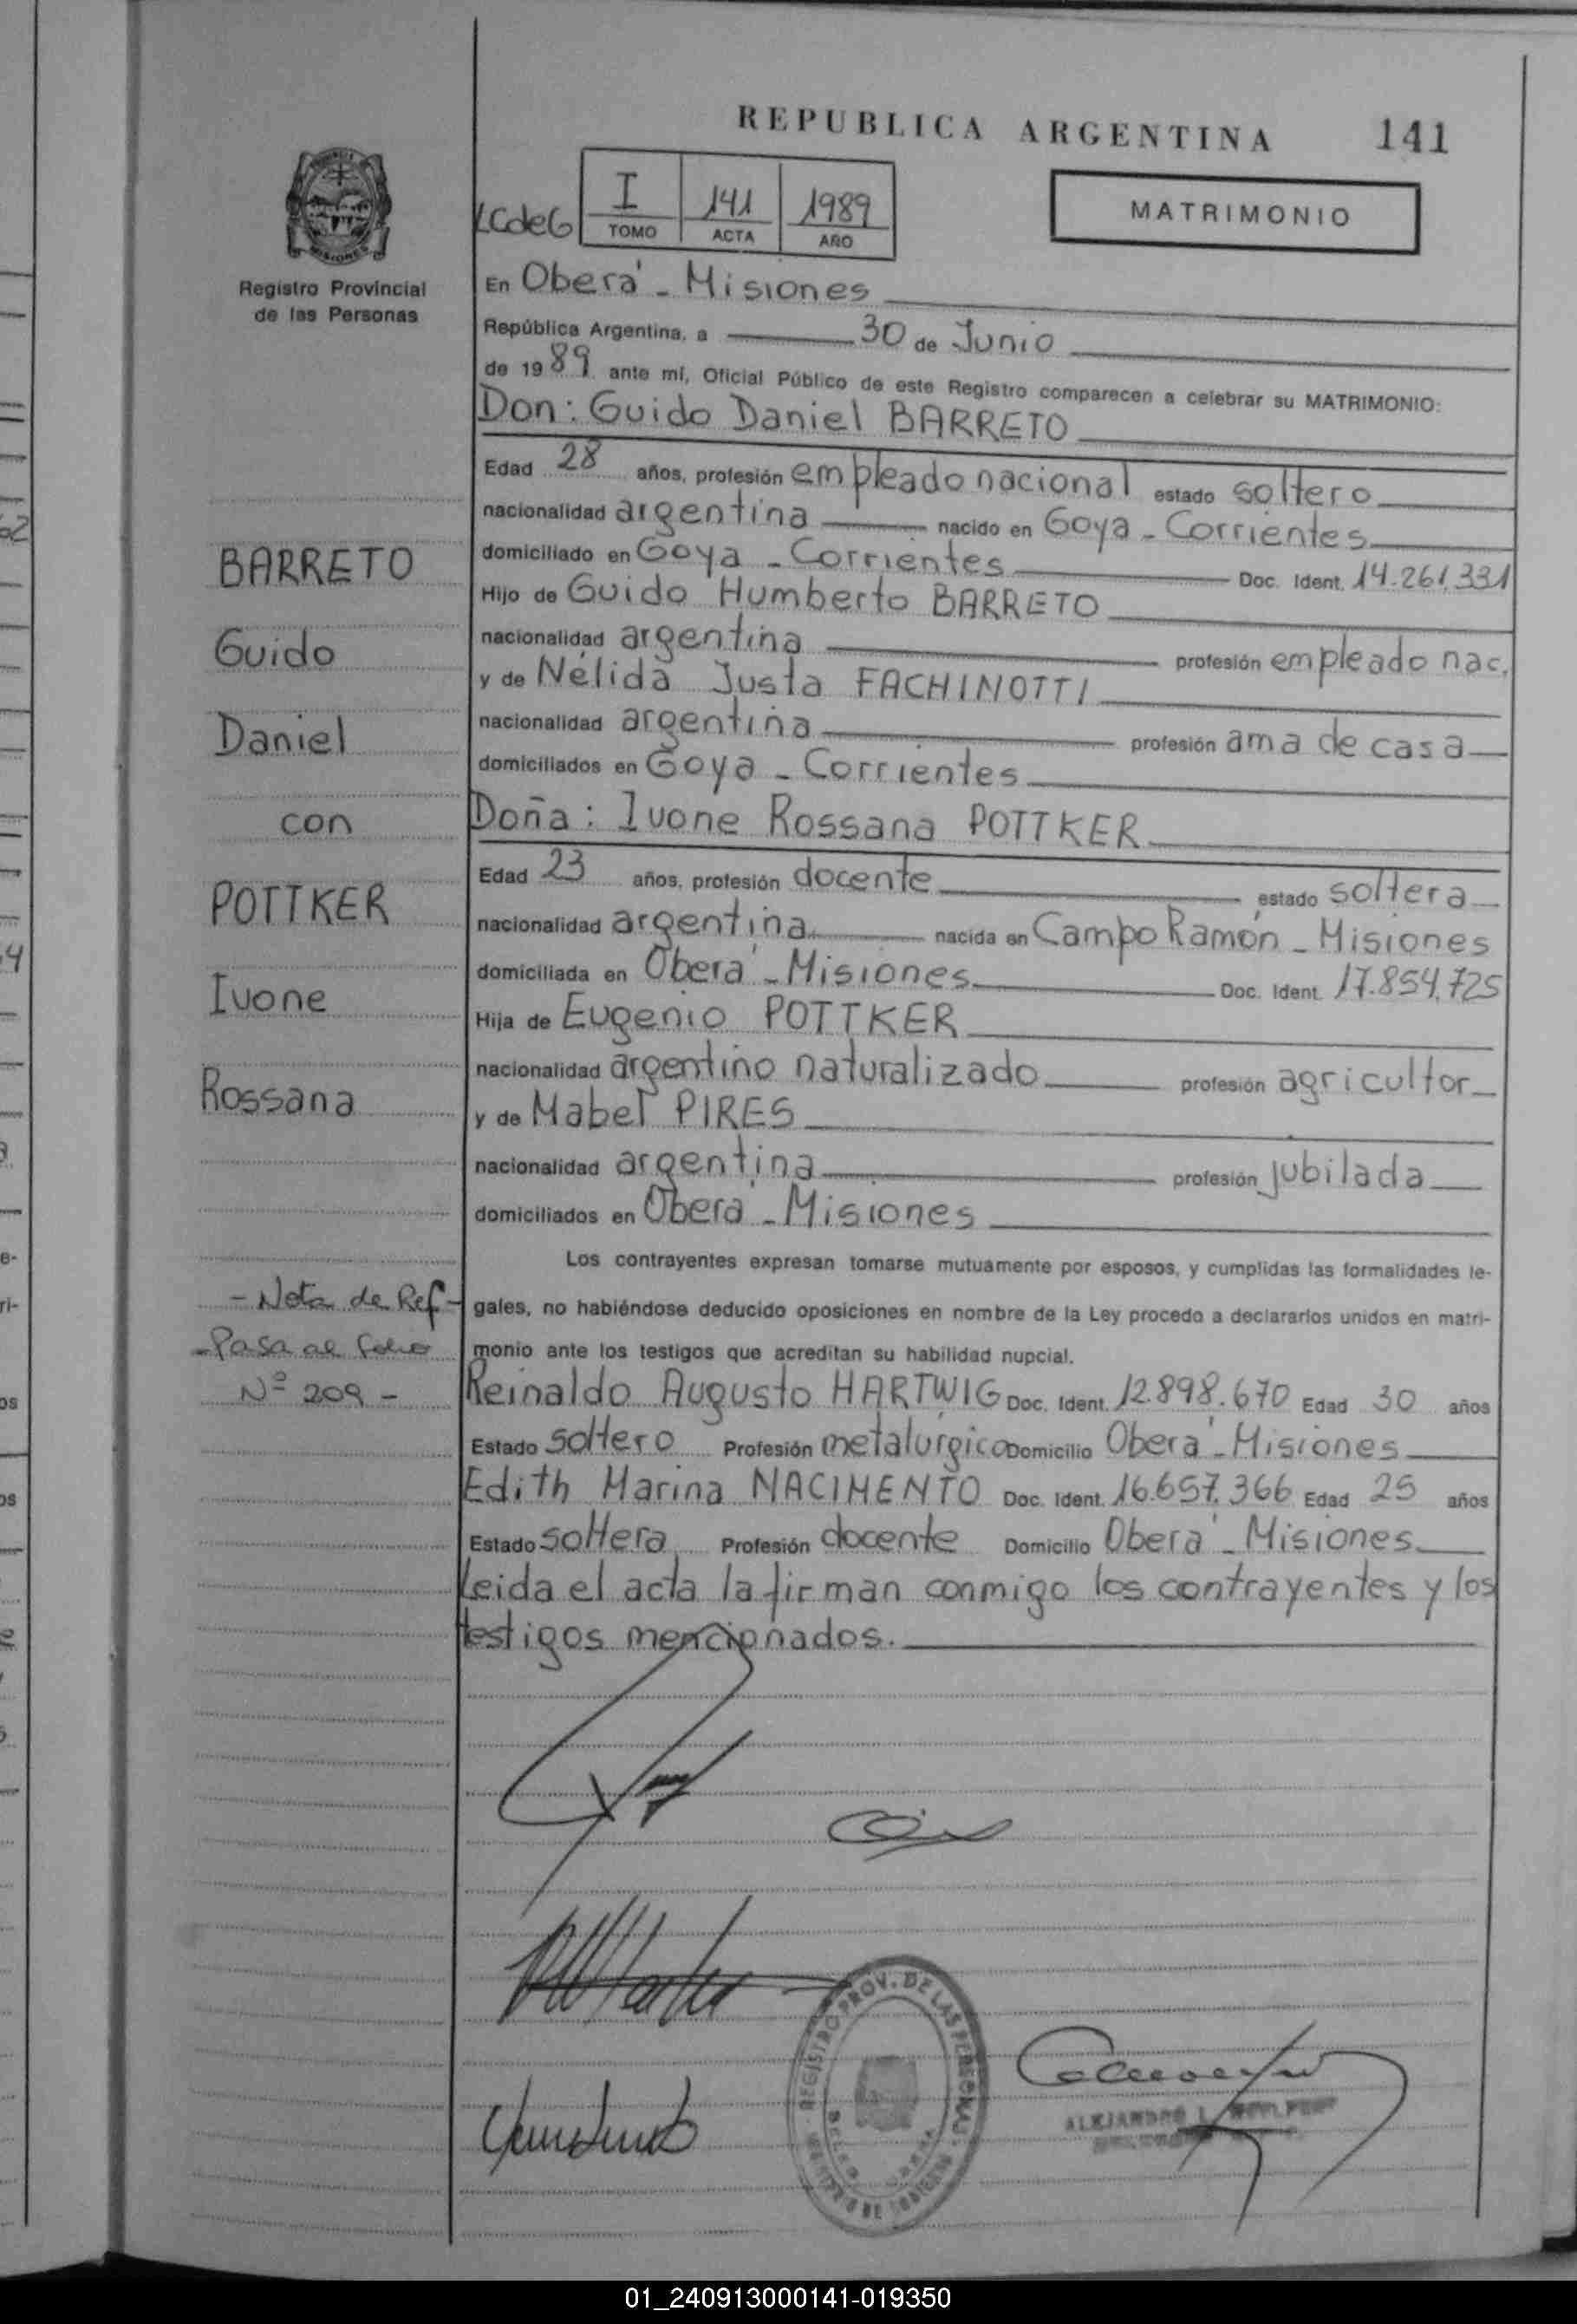 REPUBLICA ARGENTINA 141
I 141 1989
TOMO ACTA AÑO
MATRIMONIO
Registro Provincial
de las Personas
En Oberá - Misiones
República Argentina, a 30 de Junio
de 1989 ante mí, Oficial Público de este Registro comparecen a celebrar su MATRIMONIO:
Don: Guido Daniel BARRETO
Edad 28 años, profesión empleado nacional estado soltero
nacionalidad argentina nacido en Goya - Corrientes
domiciliado en Goya - Corrientes Doc. Ident. 14.261.331
Hijo de Guido Humberto BARRETO
nacionalidad argentina profesión empleado nac.
y de Nélida Justa FACHINOTTI
nacionalidad argentina profesión ama de casa
domiciliados en Goya - Corrientes
Doña: Ivone Rossana POTTKER
Edad 23 años, profesión docente estado soltera
nacionalidad argentina nacida en Campo Ramón - Misiones
domiciliada en Oberá - Misiones Doc. Ident. 17.854.725
Hija de Eugenio POTTKER
nacionalidad argentino naturalizado profesión agricultor
y de Mabel PIRES
nacionalidad argentina profesión jubilada
domiciliados en Oberá - Misiones
Los contrayentes expresan tomarse mutuamente por esposos, y cumplidas las formalidades le-
gales, no habiéndose deducido oposiciones en nombre de la Ley procedo a declararlos unidos en matri-
monio ante los testigos que acreditan su habilidad nupcial.
Reinaldo Augusto HARTWIG Doc. Ident. 12.898.670 Edad 30 años
Estado soltero Profesión metalúrgico Domicilio Oberá - Misiones
Edith Marina NACIMENTO Doc. Ident. 16.657.366 Edad 25 años
Estado soltera Profesión docente Domicilio Oberá - Misiones
Leida el acta la firman conmigo los contrayentes y los
testigos mencionados.
BARRETO
Guido
Daniel
con
POTTKER
Ivone
Rossana
- Nota de Ref -
- Pasa al folio
Nº 209 -
REGISTRO PROV. DE LAS PERSONAS
ALEJANDRO
01_240913000141-019350